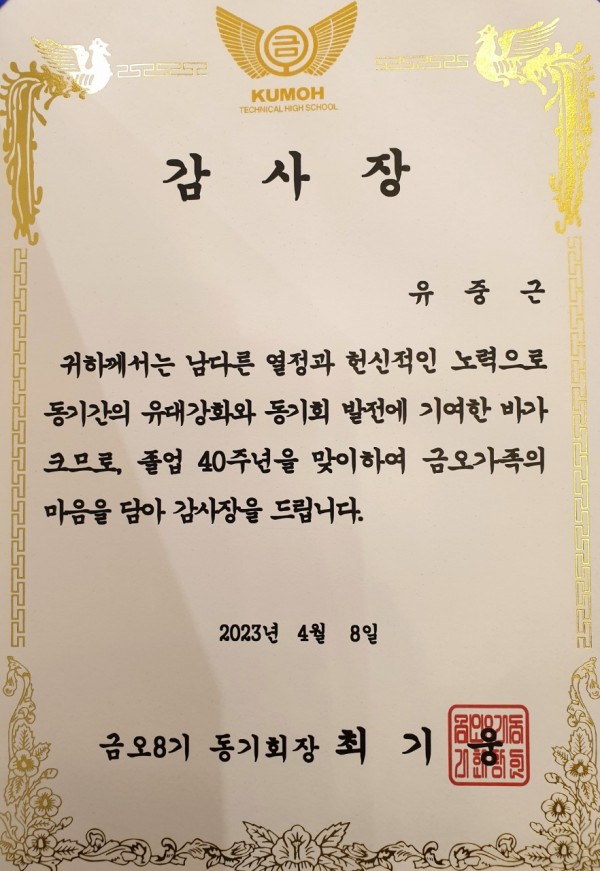 금
KUMOH
TECHNICAL HIGH SCHOOL
감 사 장
유 중 근
귀하께서는 남다른 열정과 헌신적인 노력으로
동기간의 유대강화와 동기회 발전에 기여한 바가
크므로, 졸업 40주년을 맞이하여 금오가족의
마음을 담아 감사장을 드립니다.
2023년 4월 8일
금오8기 동기회장 최 기 웅